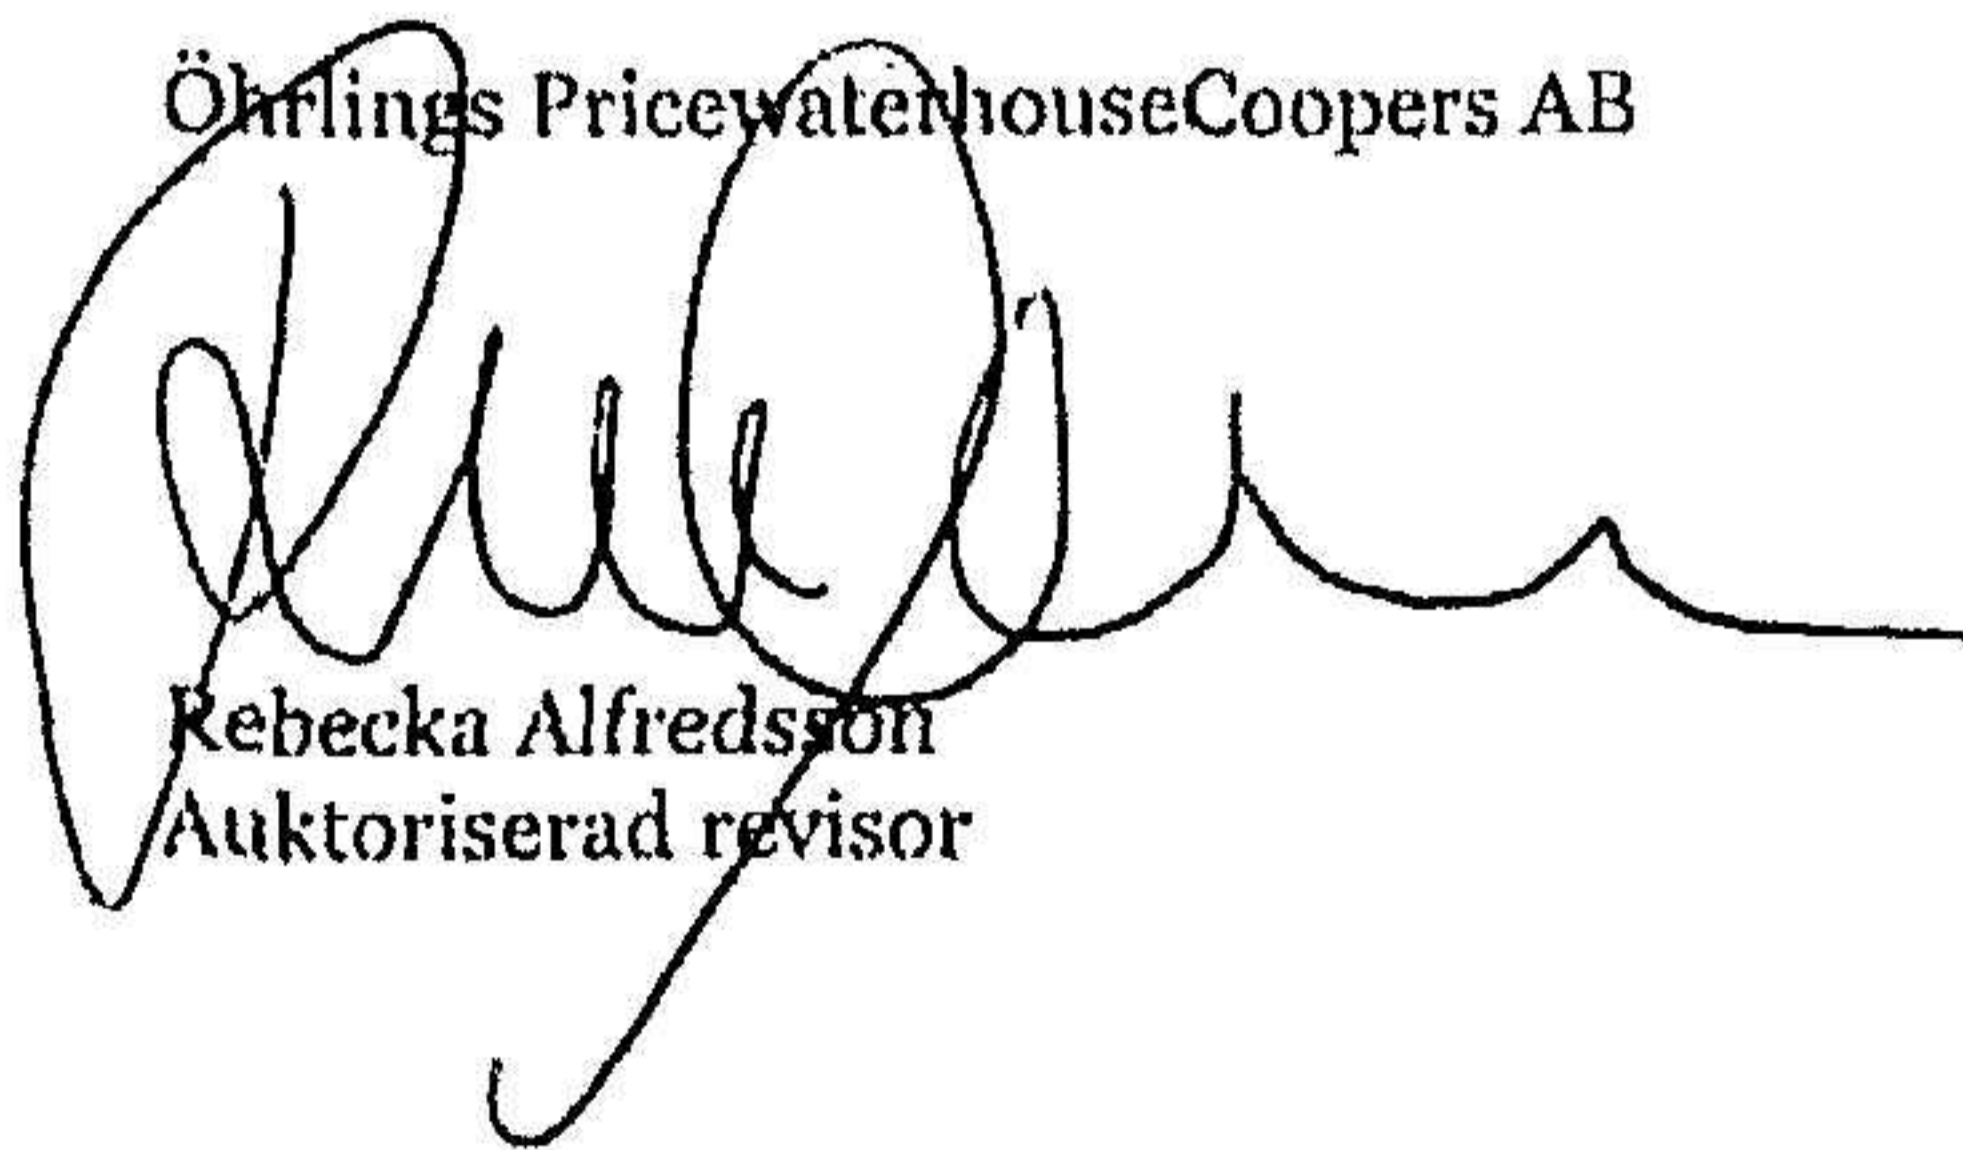 Öhrlings PricewaterhouseCoopers AB
Rebecka Alfredsson
Auktoriserad revisor